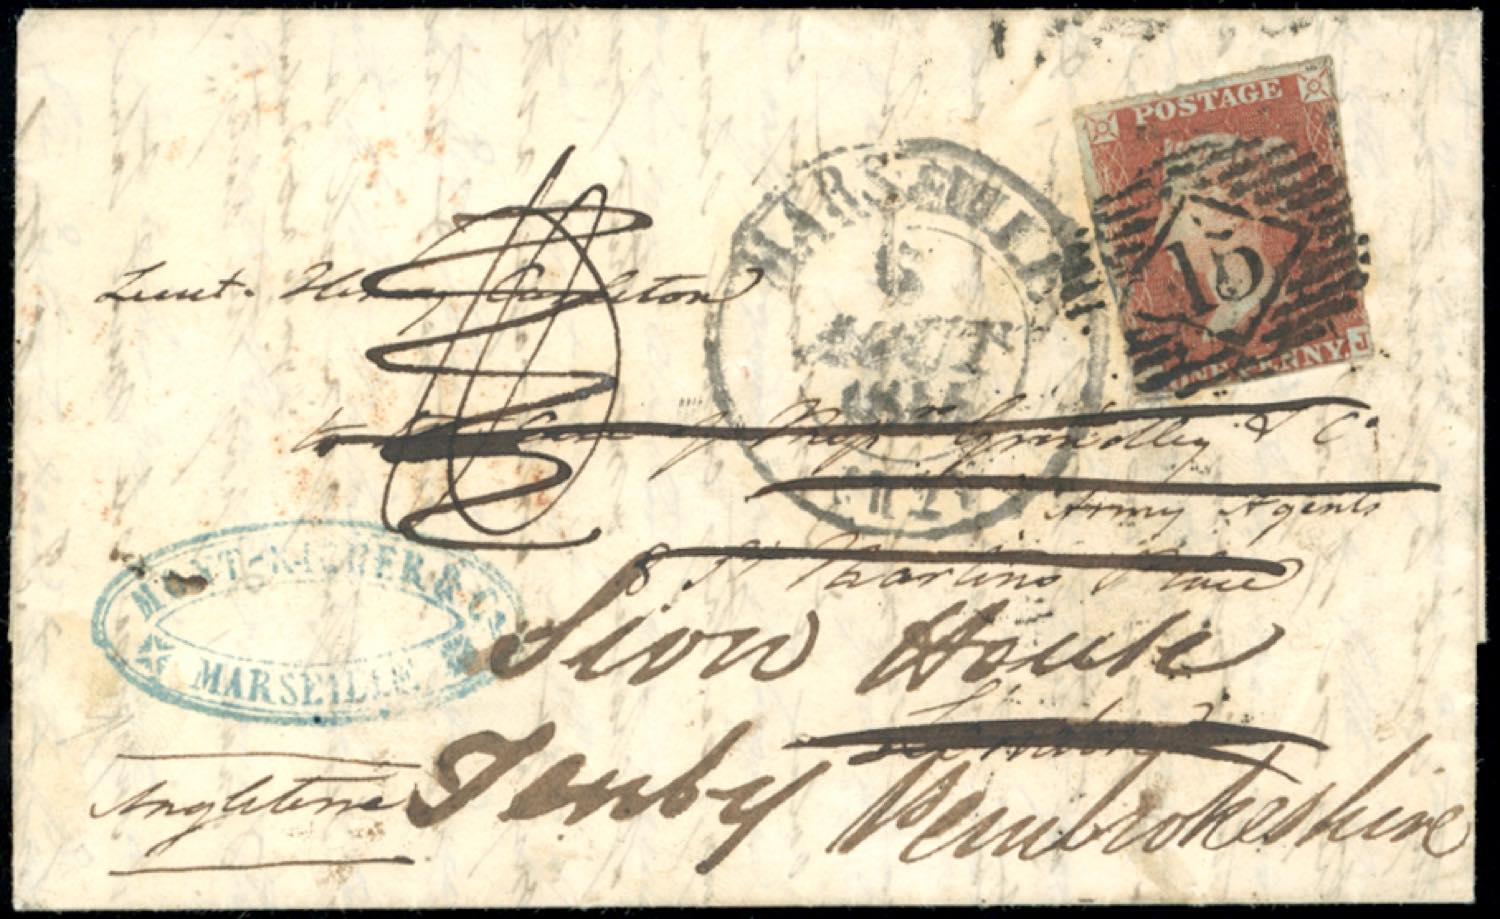 POSTAGE
15
ONE PENNY. J
MARSEILLE
15
AOUT
Lieut. Henry Carleton
to the Care of Messrs Grindley & Co
Army Agents
8 St Martins Place
MONT-RICHER & Co
MARSEILLE
Sion House
London
Angleterre
Tenby Pembrokeshire